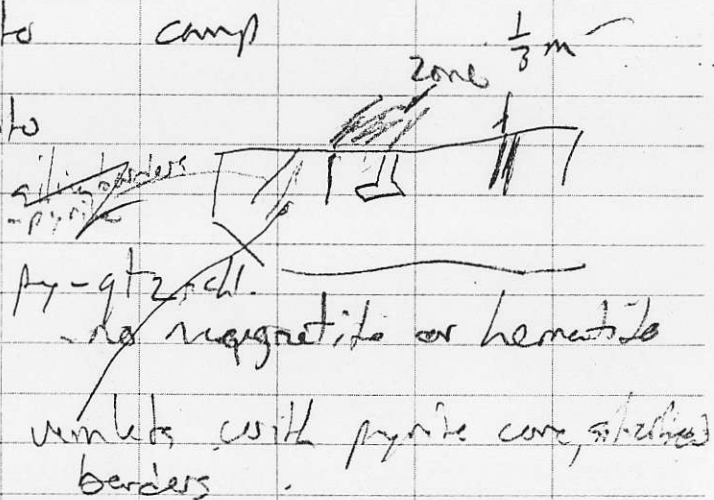 to camp
1/3 m
zone
to
borders
- pyrite
py-qtz-chl.
- no magnetite or hematite
veinlets with pyrite core, silicified
borders.